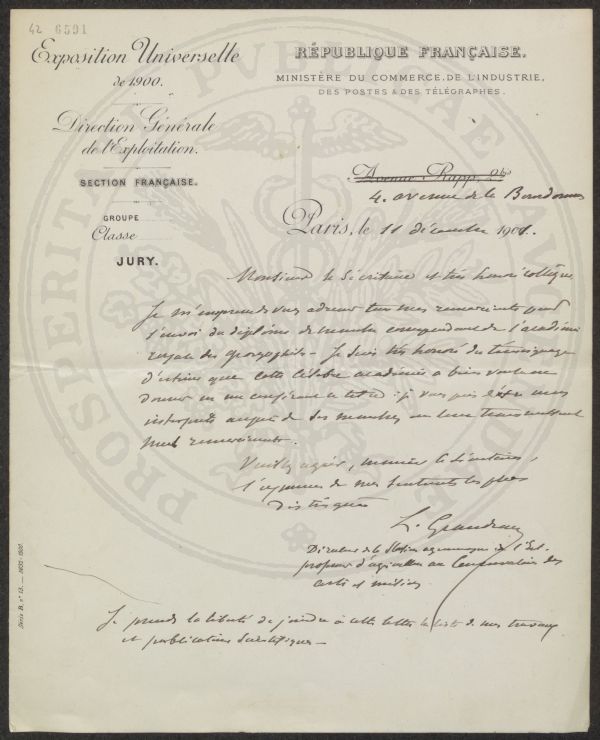 42 6591
Exposition Universelle
de 1900.
Direction Générale
de l'Exploitation.
SECTION FRANÇAISE.
GROUPE
Classe
JURY.
RÉPUBLIQUE FRANÇAISE.
MINISTÈRE DU COMMERCE, DE L'INDUSTRIE,
DES POSTES & DES TÉLÉGRAPHES.
Avenue Rapp, 2 bis
4. avenue de la
Paris, le 11 décembre 1901.
Monsieur le Secrétaire et très honoré collègue
Je m'empresse de vous adresser tous mes remerciements pour
l'envoi du diplôme de membre correspondant de l'académie
royale des georgophiles. Je suis très honoré du témoignage
d'estime que cette célèbre académie a bien voulu me
donner en me conférant ce titre : je vous prie d'être mon
interprète auprès de ses membres en leur transmettant
mes remerciements.
Veuillez agréer, monsieur le Secrétaire,
l'expression de mes sentiments les plus
distingués
L. Grandeau
Directeur de la Station agronomique de l'Est.
professeur d'agriculture au Conservatoire des
arts et métiers
Je prends la liberté de joindre à cette lettre la liste de mes travaux
et publications scientifiques —
Série B. n° 13. —
PROSPERITATI PUBLICAE AUGENDAE